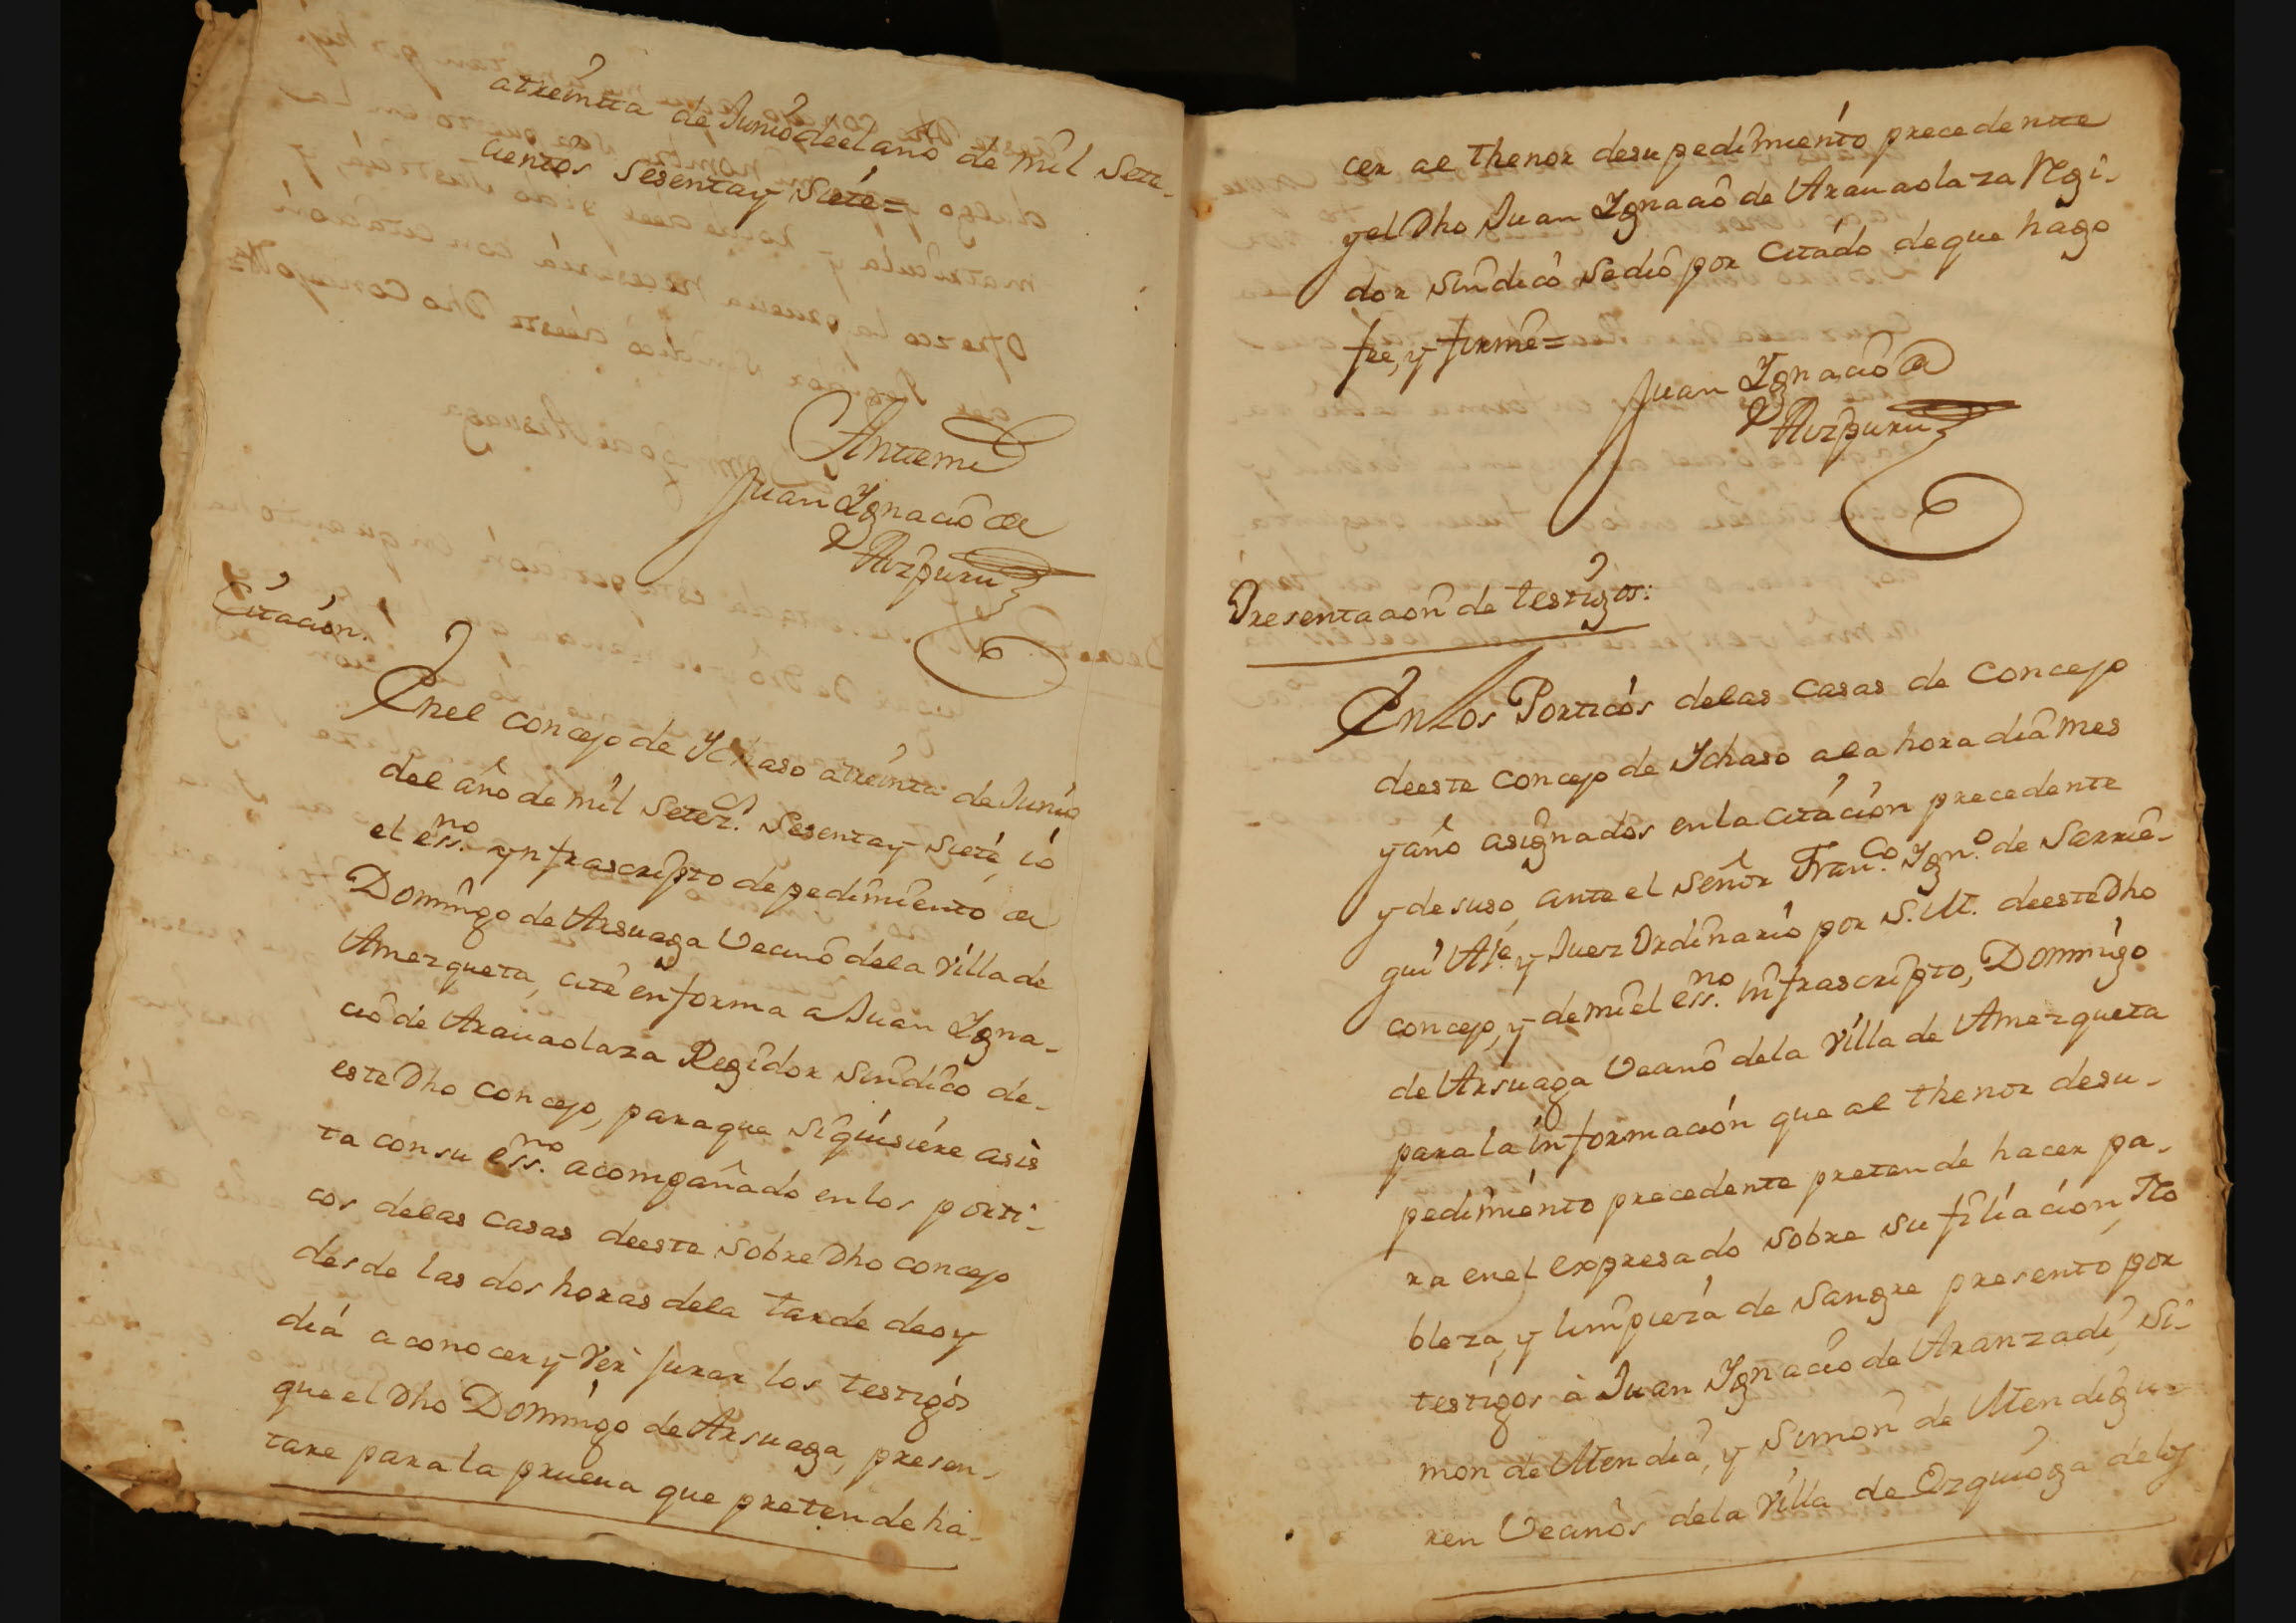 atreinta de Junio deel año de mil sete-
cientos sesentay Siete=
Antemi
Juan Ygnacio de
Aizpuru
Citacion.
Enel concejo de Ychaso atreinta de Junio
del año de mil Setez.s Sesentay Siete, io
el ess.no ynfrascripto de pedimiento de
Domingo de Arsuaga Vecino dela Villa de
Amezqueta, cite enforma a Juan Ygna-
cio de Arauaolaza Regidor Sindico de-
este Dho concejo, paraque siquisiere asis
ta consu ess.no acompañado enlos porti-
cos delas casas deeste sobre Dho concejo
desde las dos horas dela tarde deoy
dia aconocer y Ver jurar los testigos
que el Dho Domingo de Arsuaga, presen-
tare para la prueua que pretende ha-
cer al thenor desu pedimiento precedente
yel Dho Juan Ygnacio de Arauaolaza Regi-
dor Sindico sedio por Citado deque hago
fee, y firme=
Juan Ygnacio de
Aizpuru
Presentacion de testigos:
En Los Porticos delas casas de concejo
deeste concejo de Ychaso ala hora dia mes
yaño asignados enla citacion precedente
y desuso, ante el Señor Fran.co Ygn.o de Sarrie-
gui Al.e y Juez Ordinario por S.M. deeste Dho
concejo, y demi el ess.no infrascripto, Domingo
de Arsuaga Vecino dela Villa de Amezqueta
para la informacion que al thenor desu-
pedimiento precedente pretende hacer pa-
ra enel expresado sobre su filiacion, No
bleza, y limpieza de Sangre presento por
testigos à Juan Ygnacio de Aranzadi, Si-
mon de Mendia, y Simon de Mendigu-
ren Vecinos dela Villa de Ezquioga delos